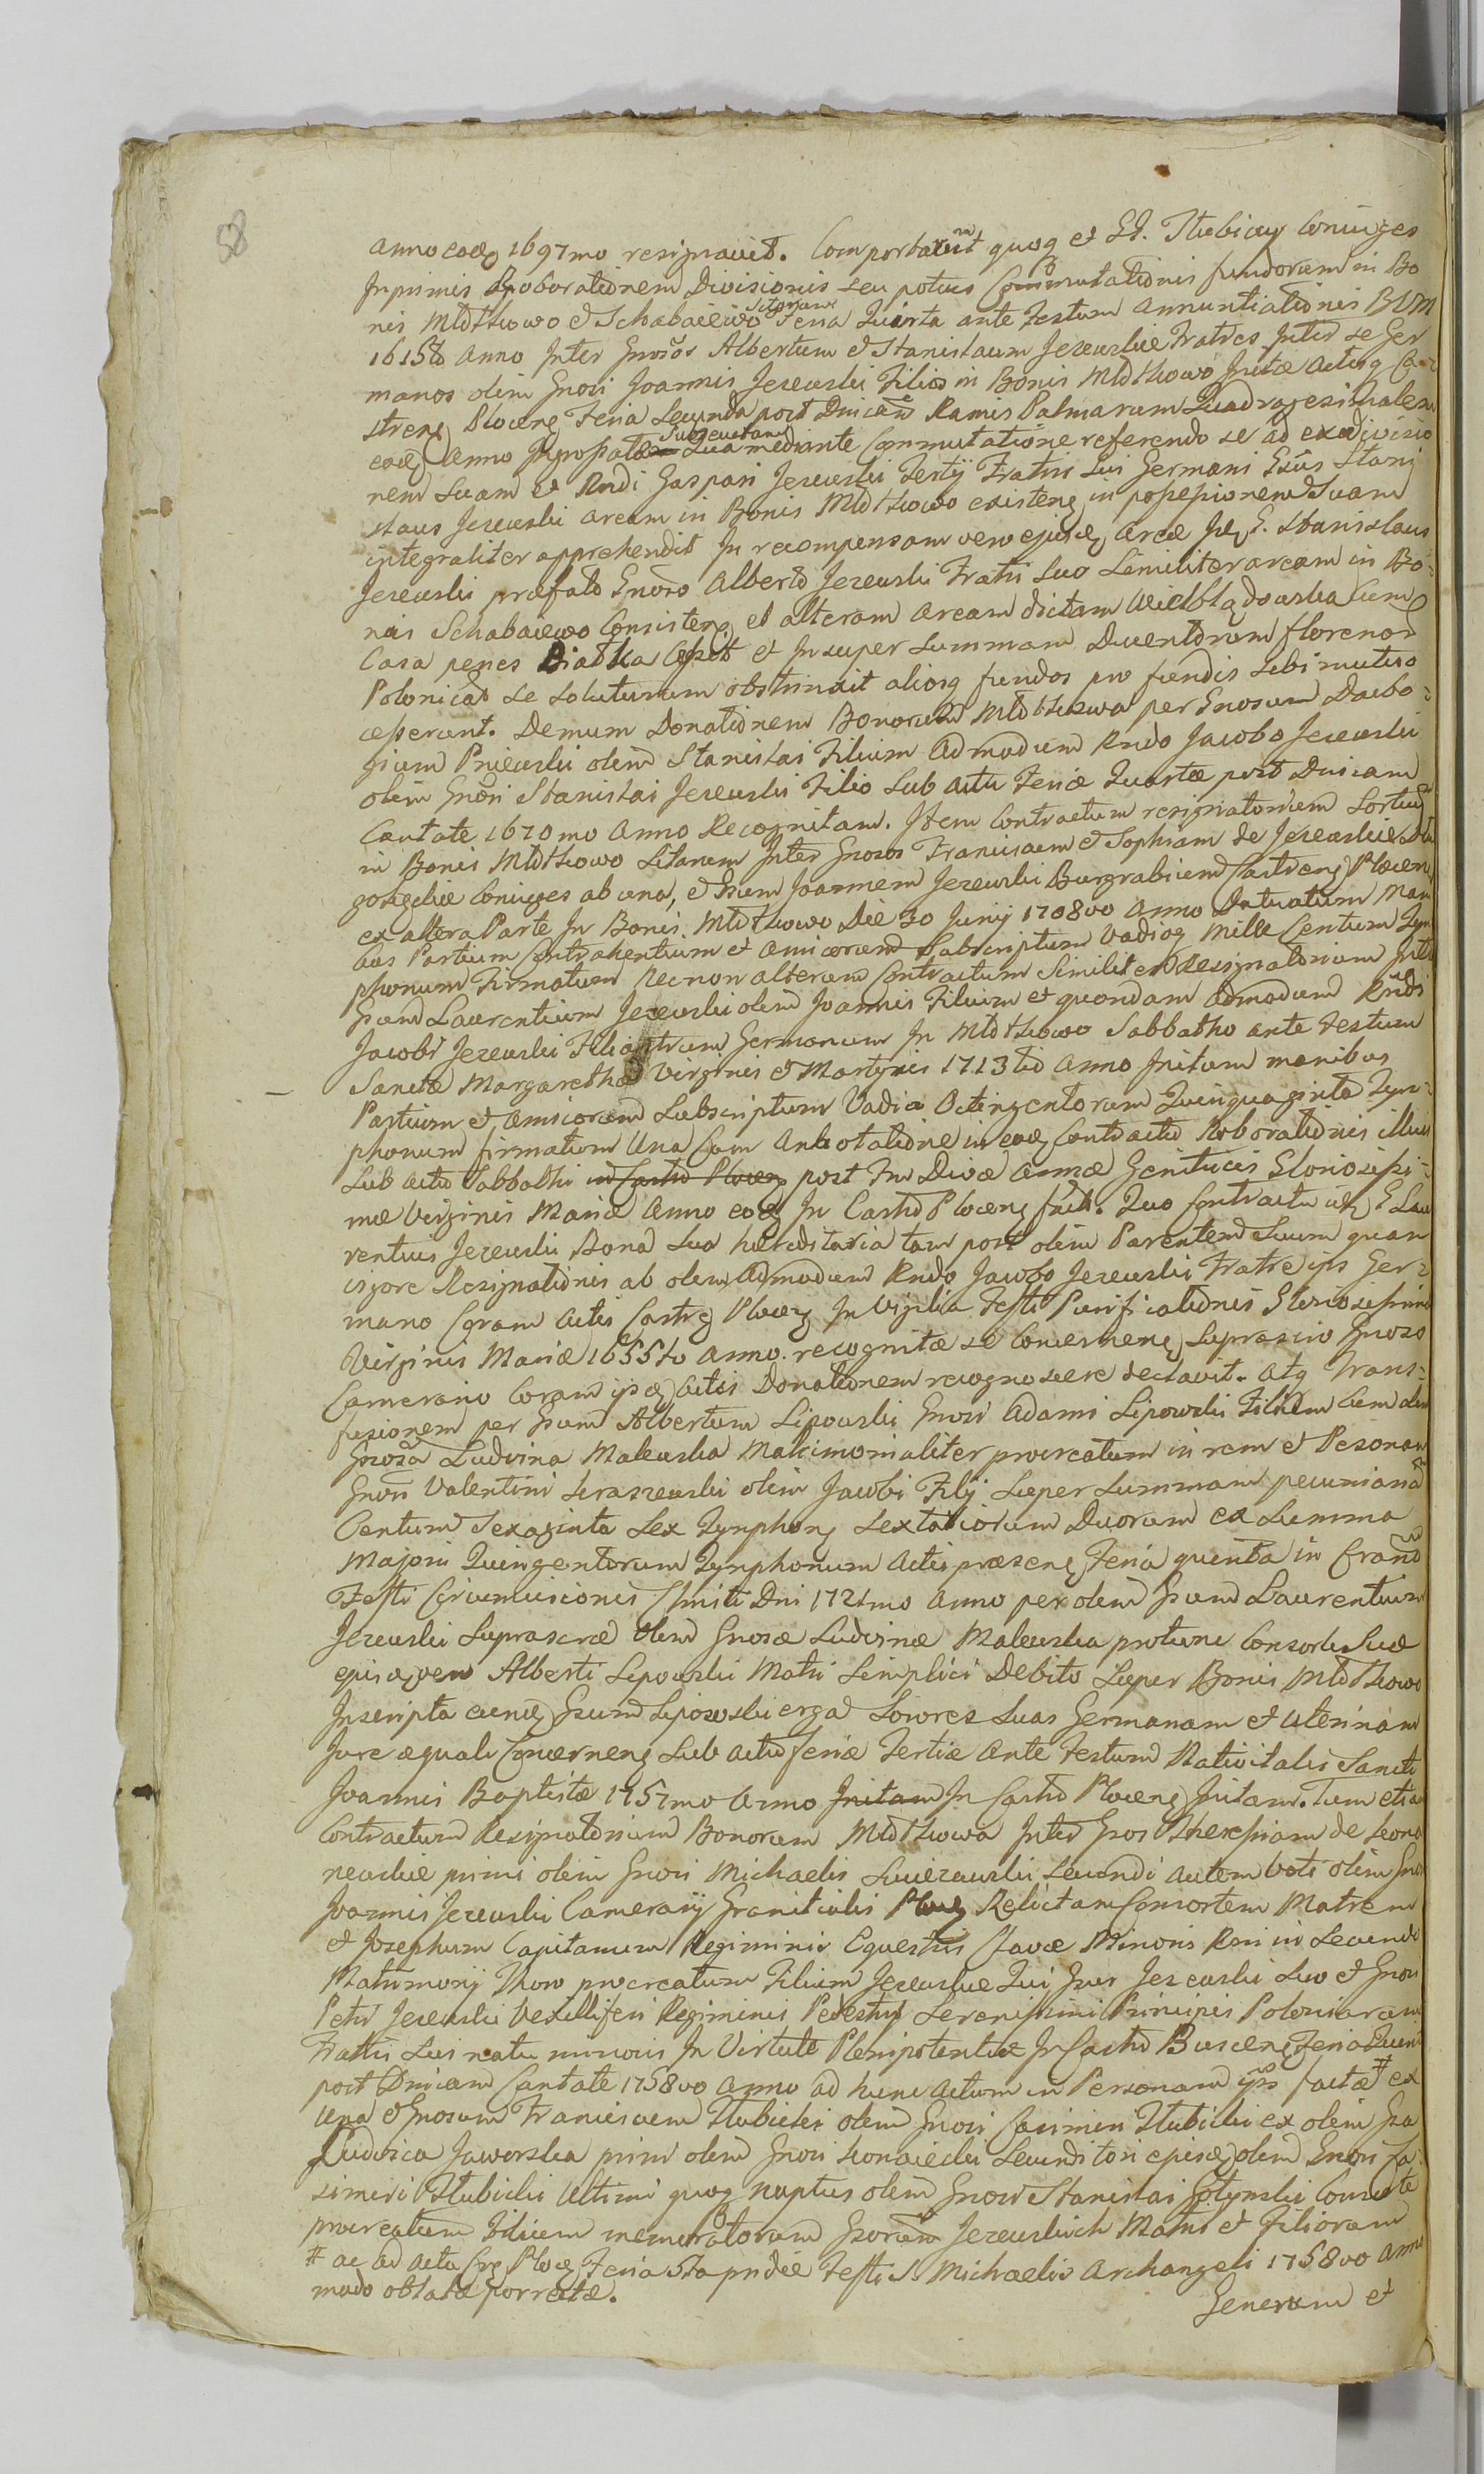 58
anno eod 1697mo resignavit. Comportarunt quoq et GG. Stubiccy Coniuges
Inprimis Roborationem Divisionis seu potius Commutationis fundorum in Bo
nis Młotkowo et Schabaiewo Sitorum Feria Quarta ante Festum Annuntiationis BVM
1615to Anno Inter Gnosos Albertum et Stanislaum Jezewskie Fratres Inter se Ger
manos olim Gnosi Joannis Jezewski Filios in Bonis Młotkowo Initae Actisq Ca
stren Plocen Feria Secunda post Dnicam Ramis Palmarum Quadragesimalem
eod Anno Ingrossatam Subsecutam Qua mediante Commutatione referendo se ad exdivisio
nem suam et Rndi Gaspari Jezewski Tertij Fratris sui Germani Gsus Stani
slaus Jezewski aream in Bonis Młotkowo existen in possessionem Suam
integraliter apprehendit In recompensam vero ejusd Areae Id G. Stanislaus
Jezewski praefato Gnoso Alberto Jezewski Fratri suo Similiter aream in Bo-
nis Schabaiewo Consisten et alteram aream dictam Cum
Casa penes Cessit et Insuper summam Ducentorum florenor
Polonical se soluturum obstrinxit aliosq fundos pro fundis sibi mutuo
cesserunt. Demum Donationem Bonorum Młotkowa per Gnosum Daibo-
gium Pniewski olim Stanislai Filium Admodum Rndo Jacobo Jezewski
olim Gnosi Stanislai Jezewski Filio Sub actu Feriae Quartae post Dnicam
Cantate 1670mo Anno Recognitam. Item Contractum resignatorium Sortis
in Bonis Młotkowo Sitarum Inter Gnosos Franciscum et Sophiam de Jezewskie
Coniuges ab una, et Gsum Joannem Jezewski Burgrabium Castren Plocen
ex altera Parte In Bonis Młotkowo Die 30 Junij 1708vo Anno Datuatum Mani
bus Partium Contrahentium et Amicorum Subscriptum Vadioq Mille Centum Tym
phonum Firmatum Necnon alterum Contractum Similiter Resignatorium Inter
Gsum Laurentium Jezewski olim Joannis Filium et quondam Admodum Rndi
Jacobi Jezewski Germanum In Młotkowo Sabbatho ante Festum
Sanctae Margarethae Virginis et Martyris 1713tio Anno Initum manibus
Partium et Amicorum Subscriptum Vadio Octingentorum Quinquaginta Tym-
phonum firmatum Una Cum Annotatione in eod Contractu Roborationis illius
Sub actu Sabbathi in Castro Plocen post Fm Divae Annae Genitricis Gloriosissi-
mae Virginis Mariae Anno eod In Castro Plocen fact. Quo Contractu id G Lau
rentius Jezewski Bona sua haereditaria tam post olim Parentem Suum quam
vigore Resignationis ab olim Admodum Rndo Jacobo Jezewski Fratre ips Ger-
mano Coram Actis Castren Plocen In Vigilia Festi Purificationis Gloriosissimae
Virginis Mariae 1655to Anno. recognitae se Concernen Suprascrio Gnoso
Camerario Coram ijsd Actis Donationem recognoscere declaravit. Atq Trans-
fusionem per Gsum Albertum Lipowski Gnosi Adami Lipowski Filium Cum olim
Gnosa Ludvina Malewska Matrimonialiter procreatum in rem et Personam
Gnosi Valentini Kraszewski olim Jacobi Filij Super Summam pecuniariam
Centum Sexaginta Sex Tynphon Sextariorum Duorum ex Summa
Majori Quingentorum Tynphonum Actis praesen Feria quinta in Crastino
Festi Circumcisionis Christi Dni 1721mo Anno per olim Gsum Laurentium
Jezewski Suprascrae olim Gnosae Ludvinae Malewska protunc Consorti Suae
ejusq vero Alberti Lipowski Matri Simplici Debito Super Bonis Młotkowo
Inscripta eund Gsum Lipowski erga Sorores Suas Germanam et Uterinam
Jure aequali Concernen Sub actu feriae Tertiae Ante Festum Nativitatis Sancti
Joannis Baptistae 1757mo Anno Initam In Castro Plocen Initam. Tum etiam
Contractum Resignatorium Bonorum Młotkowa Inter Gnos Theresiam de Kono
newskie primi olim Gnosi Michaelis Swiezawski Secundi autem Voti olim Gnosi
Joannis Jezewski Camerarij Granicialis Ploc Relictam Consortem Matrem
et Josephum Capitanum Regiminis Equestris Clavae Minoris Rni in Secundo
Matrimonij Thoro procreatum Filium Jezewskie Qui Gsus Jezewski Suo et Gnosi
Petri Jezewski Vexilliferi Regiminis Pedestris Serenissimi Principis Poloniarum
Fratris Sui natu minoris In Virtute Plenipotentiae In Castro Buscen Feria Quin
post Dnicam Cantate 1758vo Anno ad hunc Actum in Personam ips factae # ex
Una et Gnosum Franciscum Stubicki olim Gnosi Casimiri Stubicki ex olim Gsa
Ludovica Jaworska primi olim Gnosi Konarecki Secundi tori ejusd olim Gnosi Ca
simiri Stubicki Ultimi quoq nuptus olim Gnosi Stanislai Consorte
procreatum Filium memoratorum Gsorum Jezewskich Matris et Filiorum
# ac ad acta Crs Ploc Feria 5ta pridie Festi S Michaelis Archangeli 1758vo Anno
modo oblatae porrectae.
Generum et